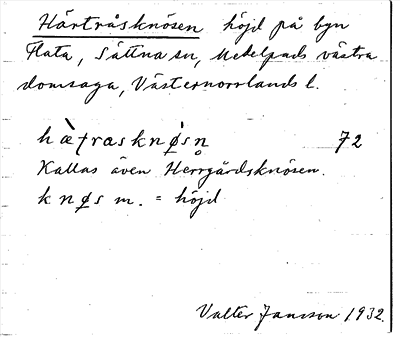 Härtråsknösen höjd på byn
Flata, Sättna sn, Medelpads västra
domsaga, Västernorrlands l.
hæ̀ṭrasknø̀sn̥ 72
Kallas även Herrgårdsknösen.
knøs m. = höjd
Valter Jansson 1932.